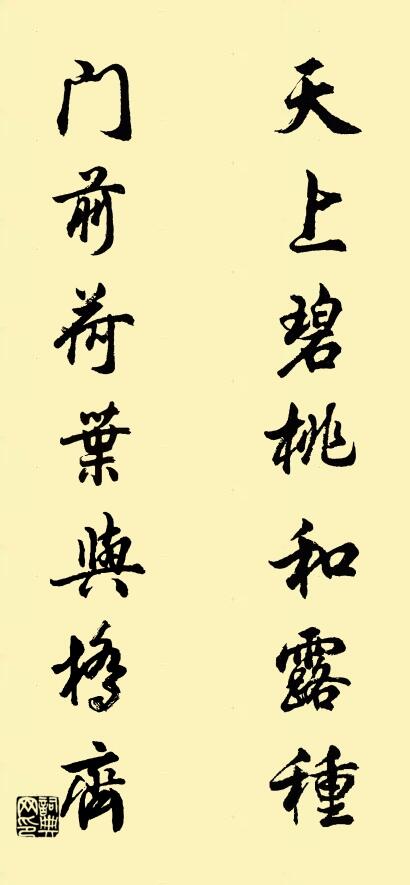 天上碧桃和露種
门前荷葉與橋齊